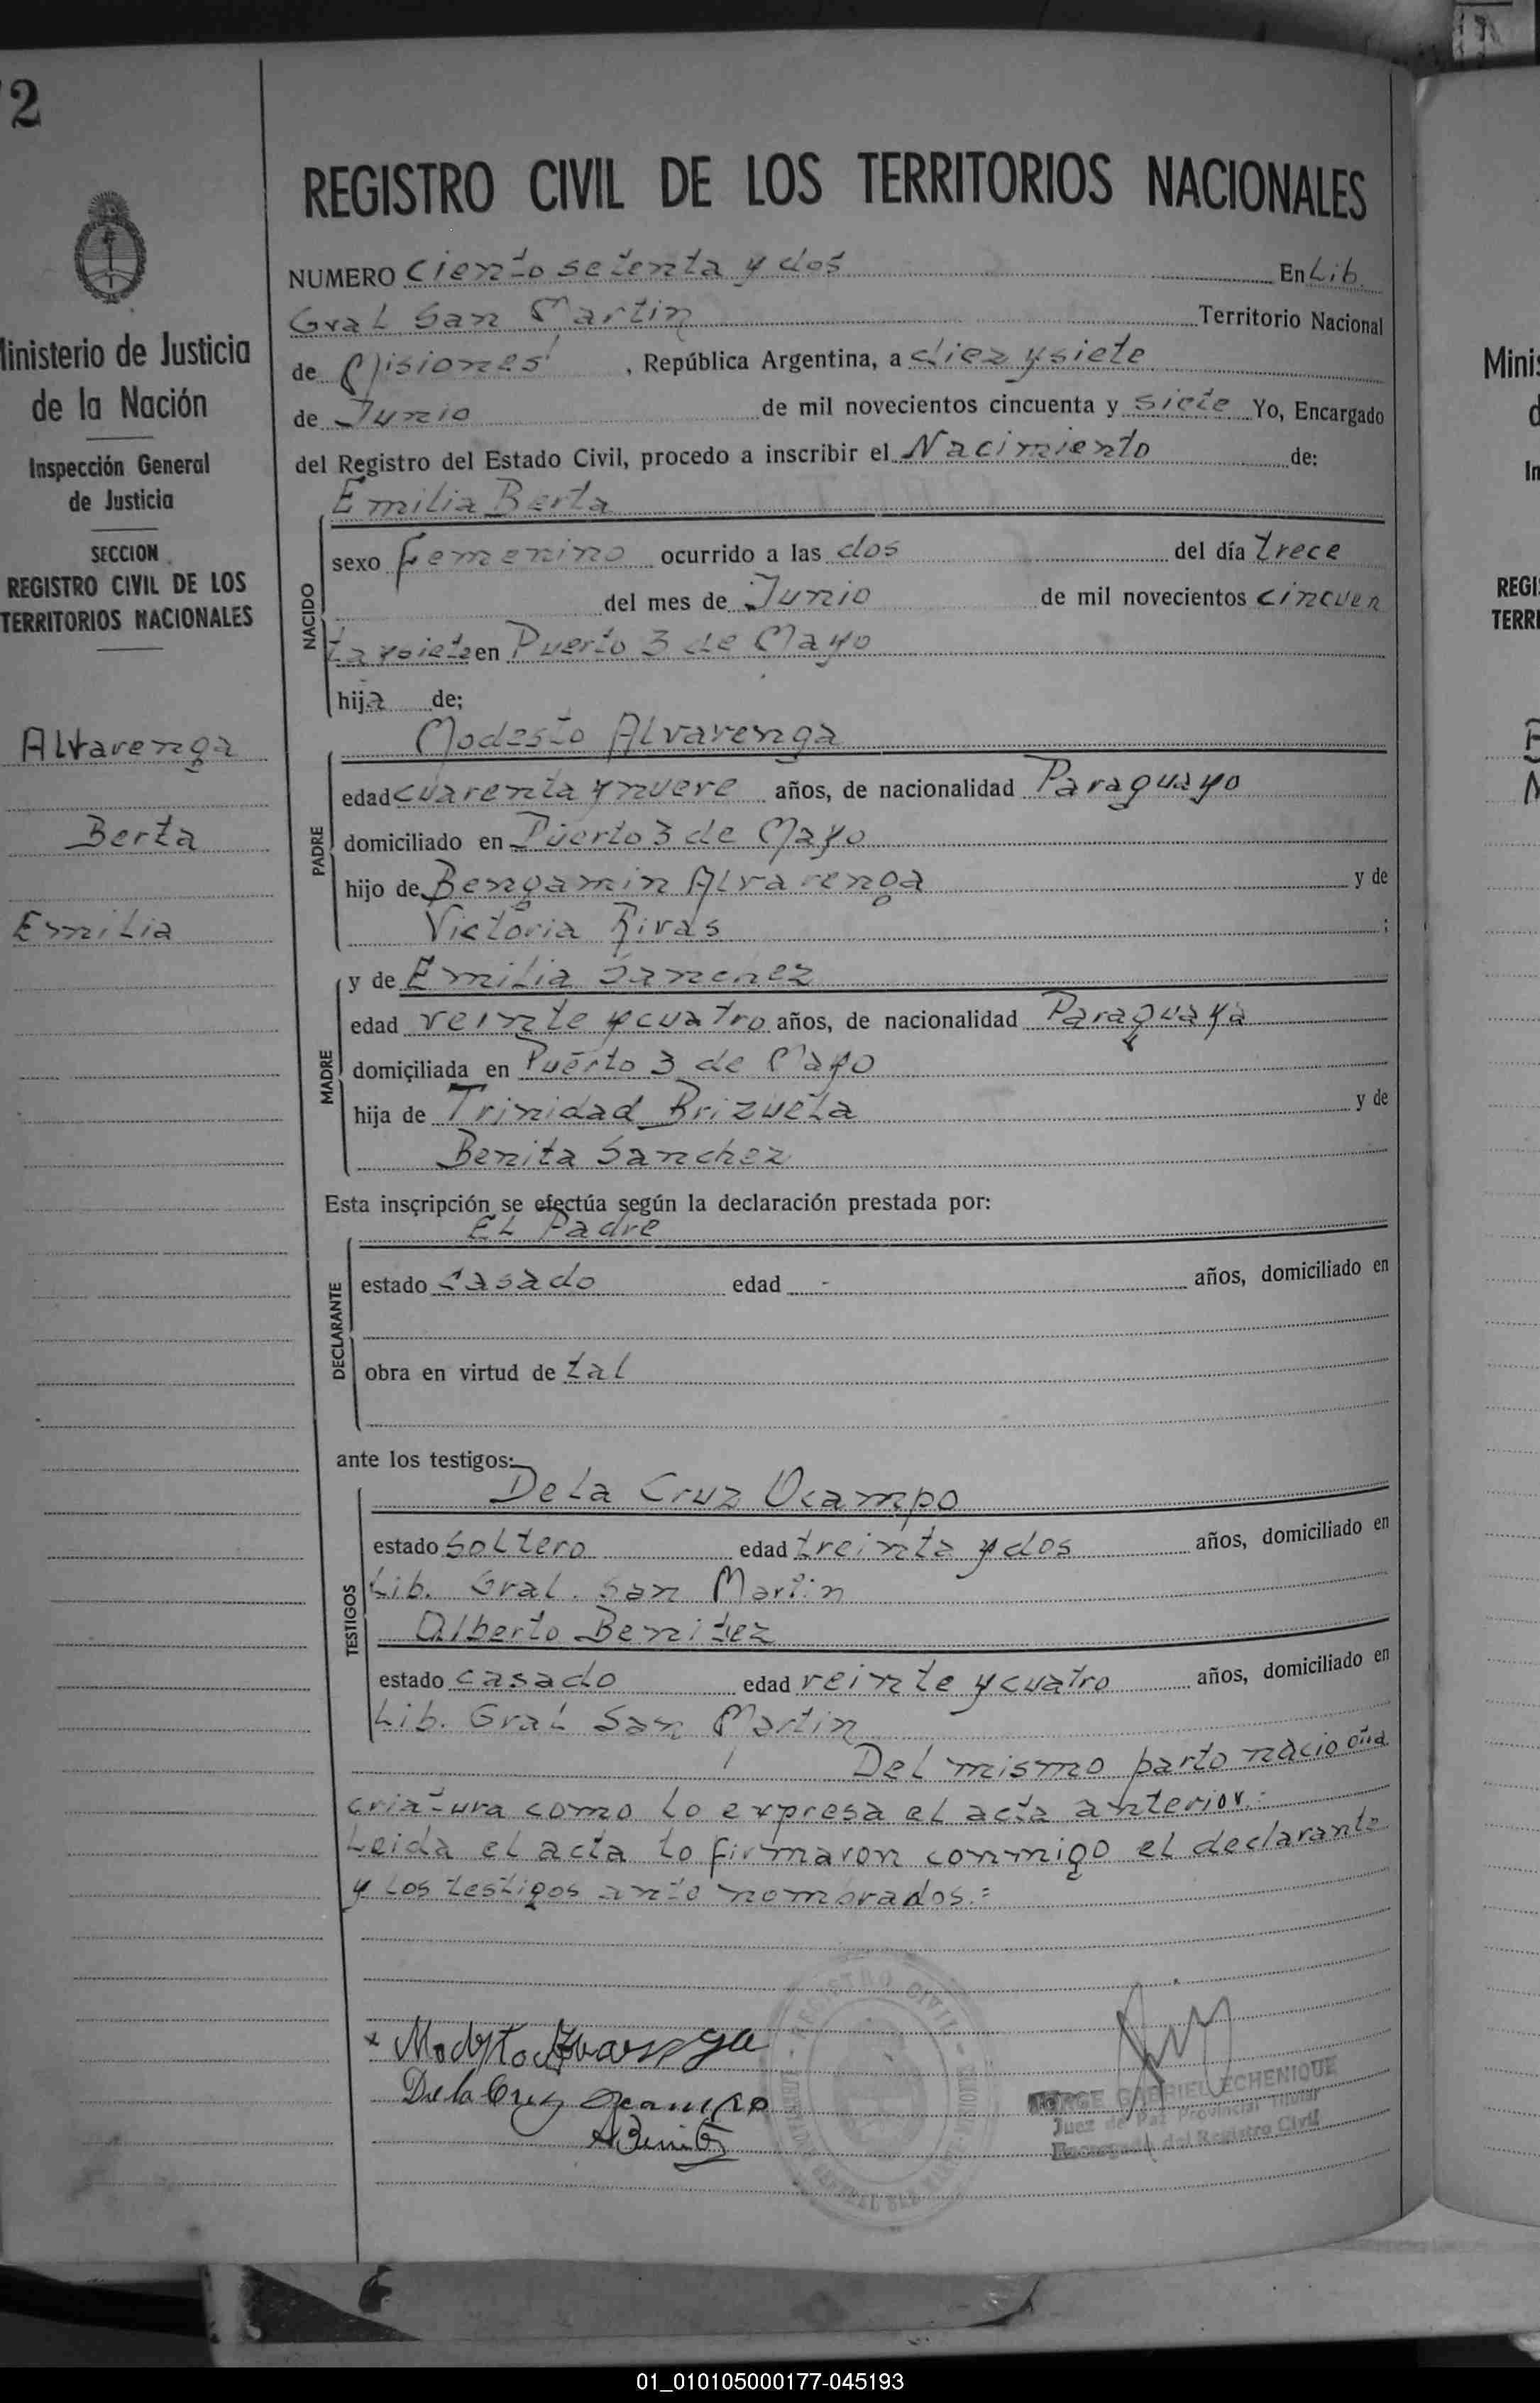 72
Ministerio de Justicia
de la Nación
Inspección General
de Justicia
SECCION
REGISTRO CIVIL DE LOS
TERRITORIOS NACIONALES
Alvarenga
Berta
Emilia
REGISTRO CIVIL DE LOS TERRITORIOS NACIONALES
NUMERO Ciento setenta y dos En Lib.
Gral San Martin Territorio Nacional
de Misiones, República Argentina, a diez y siete
de Junio de mil novecientos cincuenta y siete Yo, Encargado
del Registro del Estado Civil, procedo a inscribir el Nacimiento de:
Emilia Berta
NACIDO
sexo femenino ocurrido a las dos del día trece
del mes de Junio de mil novecientos cincuen
ta y siete en Puerto 3 de Mayo
hija de;
Modesto Alvarenga
PADRE
edad cuarenta y nueve años, de nacionalidad Paraguayo
domiciliado en Puerto 3 de Mayo
hijo de Bengamin Alvarenga y de
Victoria Rivas ;
MADRE
y de Emilia Sanchez
edad veinte y cuatro años, de nacionalidad Paraguaya
domiciliada en Puerto 3 de Mayo
hija de Trinidad Brizuela y de
Benita Sanchez
Esta inscripción se efectúa según la declaración prestada por:
El Padre
DECLARANTE
estado casado edad - años, domiciliado en
obra en virtud de tal
ante los testigos:
De la Cruz Ocampo
TESTIGOS
estado Soltero edad treinta y dos años, domiciliado en
Lib. Gral. San Martin
Alberto Benitez
estado casado edad veinte y cuatro años, domiciliado en
Lib. Gral San Martin
Del mismo parto nacio otra
criatura como lo expresa el acta anterior.=
Leida el acta lo firmaron conmigo el declarante
y los testigos ante nombrados.=
x Modesto Alvarenga
De la Cruz Ocampo
ABenitez
REGISTRO CIVIL
JORGE GABRIEL ECHENIQUE
Juez de Paz Provincial Titular
Encargado del Registro Civil
01_010105000177-045193